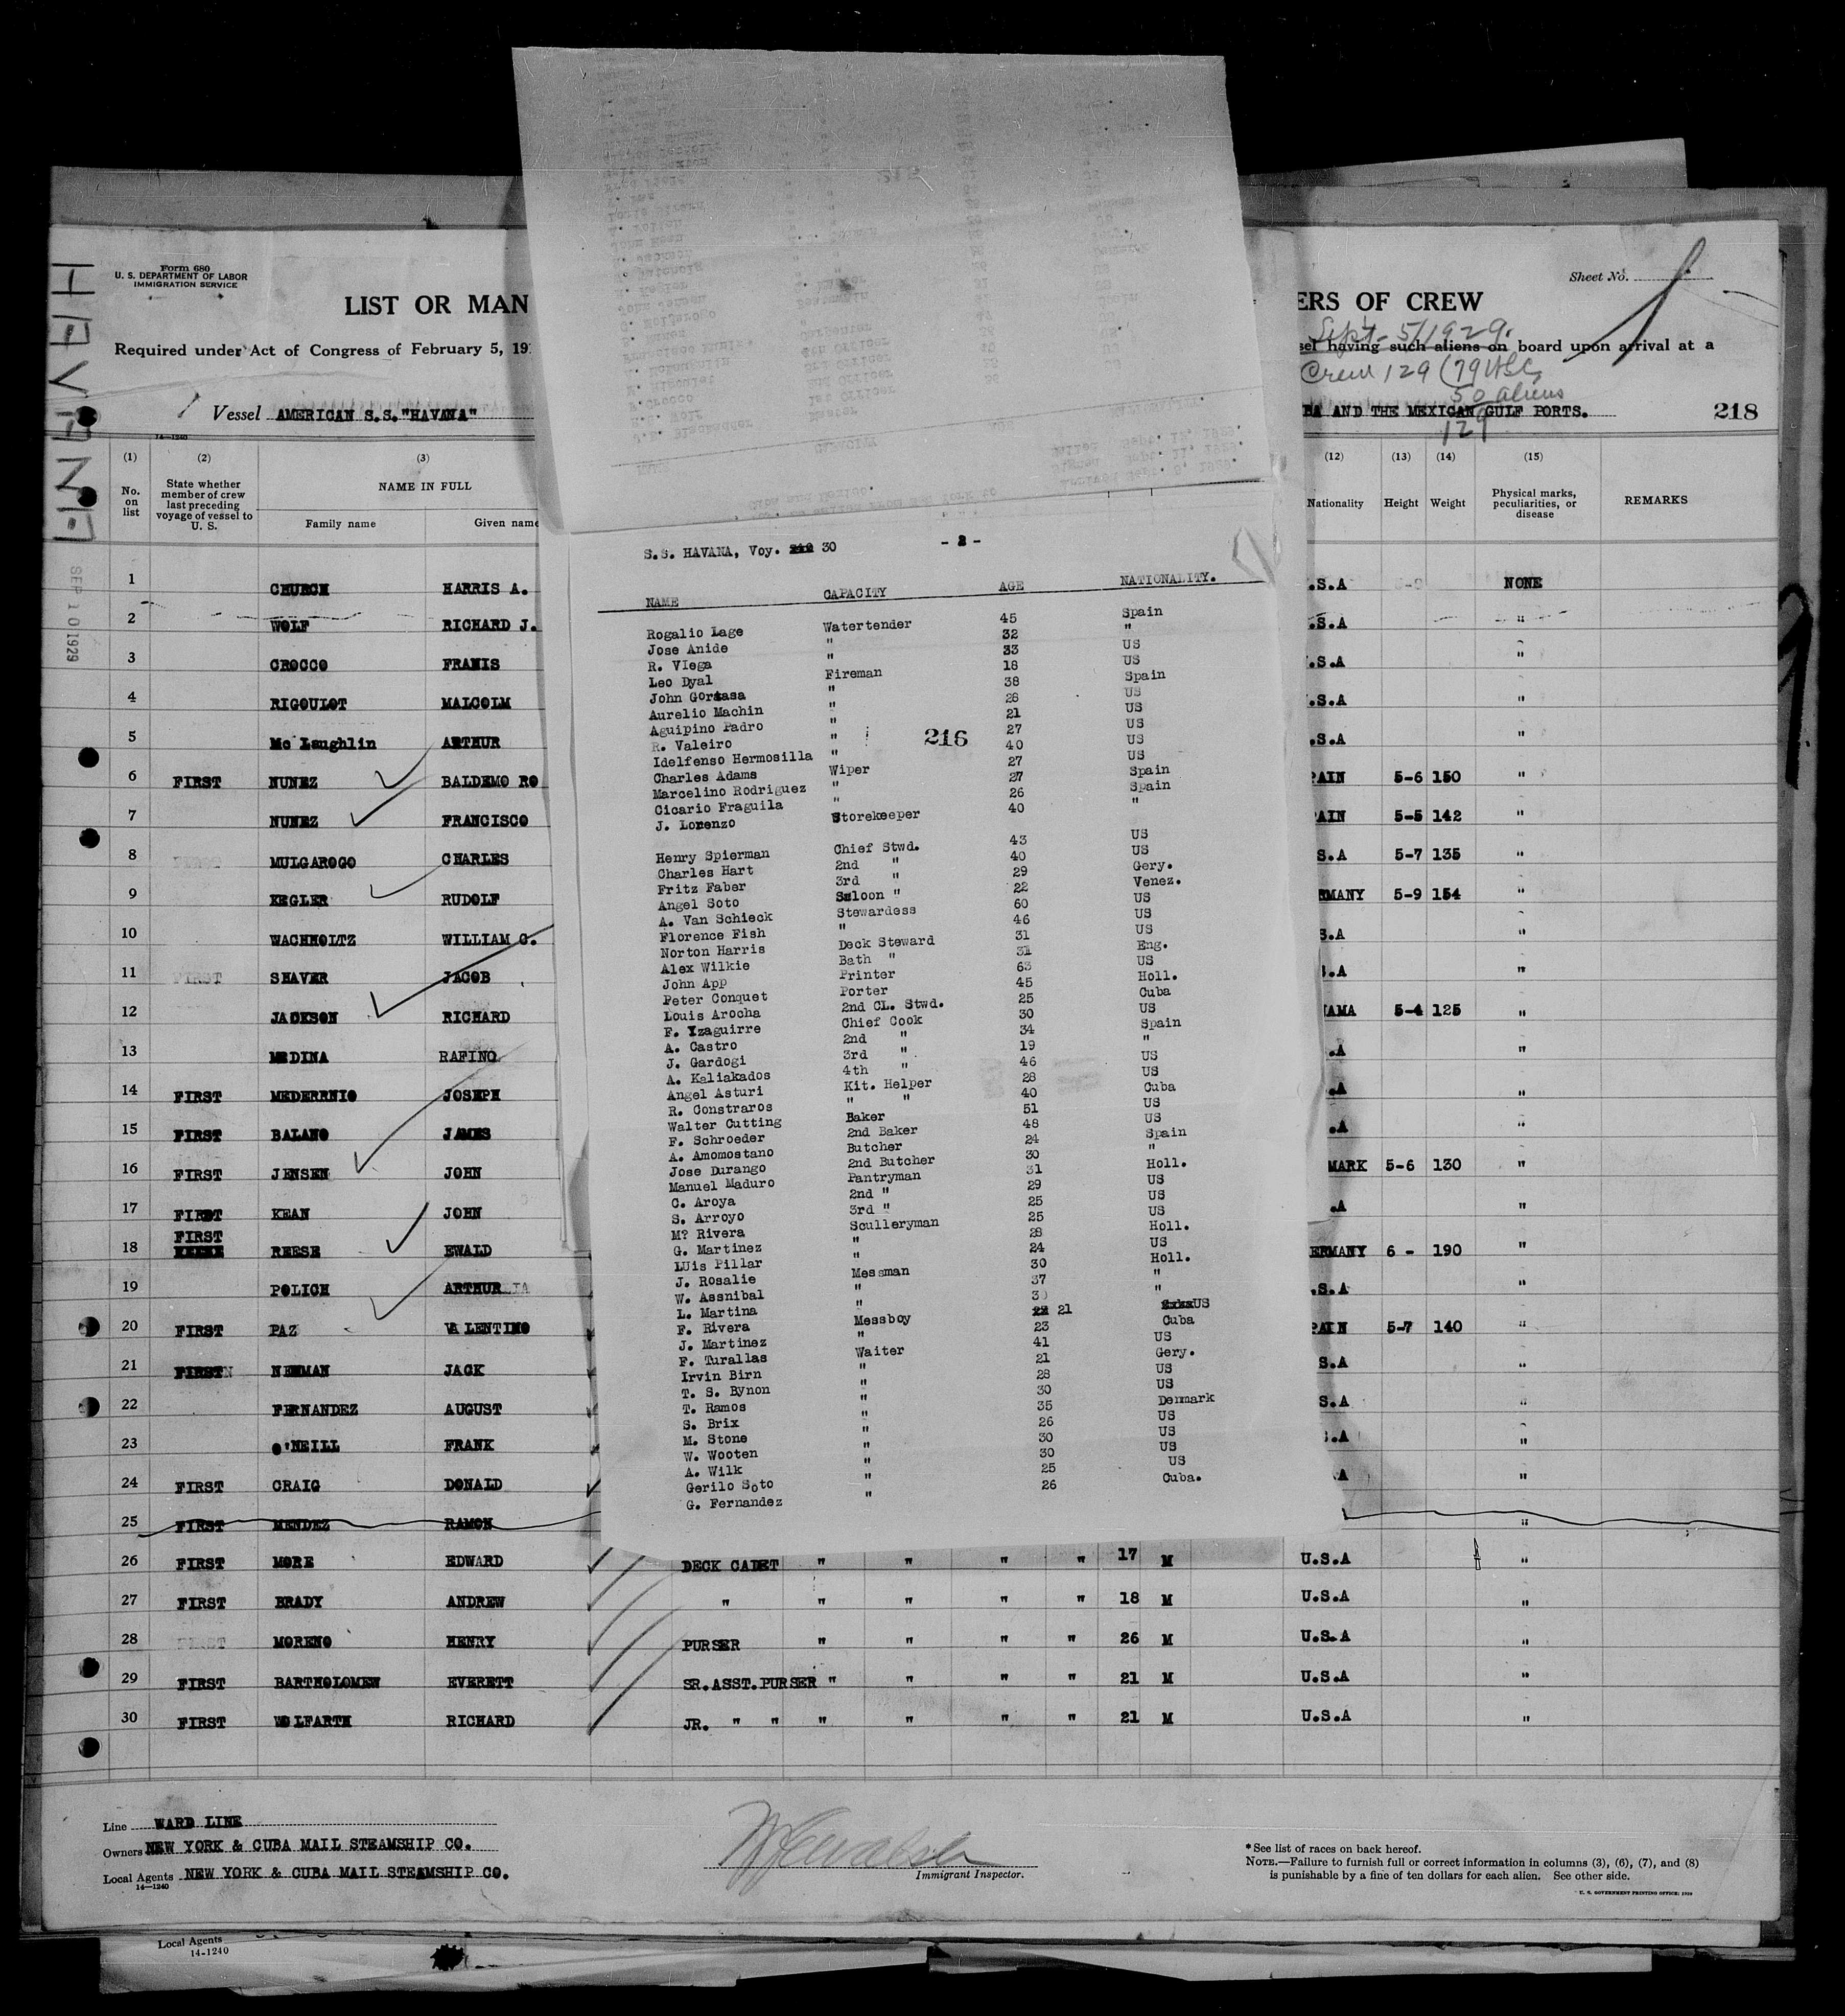 Form 680
U. S. DEPARTMENT OF LABOR
IMMIGRATION SERVICE
HAVANA
SEP 10 1929
Sheet No.
LIST OR MAN
ERS OF CREW
Sept-5/1929.
Required under Act of Congress of February 5, 19
sel having such aliens on board upon arrival at a
Crew 129 (79 USC
50 aliens
129
Vessel AMERICAN S.S."HAVANA"
BA AND THE MEXICAN GULF PORTS.
218
14—1240
(1) (2) (3) (12) (13) (14) (15)
No. on list
State whether member of crew last preceding voyage of vessel to U. S.
NAME IN FULL
Family name Given name
Nationality Height Weight
Physical marks, peculiarities, or disease
REMARKS
1 CHURCH HARRIS A. .S.A NONE
2 WOLF RICHARD J. .S.A "
3 CROCCO FRANIS .S.A "
4 RIGOULOT MALCOLM .S.A "
5 Mc Laughlin ARTHUR .S.A "
6 FIRST NUNEZ BALDEMO RO PAIN 5-6 150 "
7 NUNEZ FRANCISCO AIN 5-5 142 "
8 FIRST MULGAROGO CHARLES S.A 5-7 135 "
9 KEGLER RUDOLF RMANY 5-9 154 "
10 WACHHOLTZ WILLIAM G. S.A "
11 FIRST SHAVER JACOB .A "
12 JACKSON RICHARD AMA 5-4 125 "
13 MEDINA RAFINO .A "
14 FIRST MEDERRNIO JOSEPH .A "
15 FIRST BALANO JAMES .A "
16 FIRST JENSEN JOHN MARK 5-6 130 "
17 FIRST KEAN JOHN .A "
18 FIRST REESE EWALD ERMANY 6 - 190 "
19 POLICH ARTHUR .S.A "
20 FIRST PAZ VALENTINO PAIN 5-7 140 "
21 FIRST NEWMAN JACK S.A "
22 FERNANDEZ AUGUST S.A "
23 O'NEILL FRANK .A "
24 FIRST CRAIG DONALD A "
25 FIRST MENDEZ RAMON "
26 FIRST MORE EDWARD DECK CADET " " " " 17 M U.S.A "
27 FIRST BRADY ANDREW " " " " " 18 M U.S.A "
28 FIRST MORENO HENRY PURSER " " " " 26 M U.S.A "
29 FIRST BARTHOLOMEW EVERETT SR.ASST.PURSER " " " " 21 M U.S.A "
30 FIRST WOLFARTH RICHARD JR. " " " " " " 21 M U.S.A "
S.S. HAVANA, Voy. 30 - 2 -
NAME CAPACITY AGE NATIONALITY.
Rogalio Lage Watertender 45 Spain
Jose Anide " 32 "
R. VIega " 33 US
Leo Dyal Fireman 18 US
John Gortasa " 38 Spain
Aurelio Machin " 28 US
Aguipino Padro " 21 US
R. Valeiro " 27 US
216
Idelfenso Hermosilla " 40 US
Charles Adams Wiper 27 US
Marcelino Rodriguez " 27 Spain
Cicario Fraguila " 26 Spain
J. Lorenzo Storekeeper 40 "
Henry Spierman Chief Stwd. 43 US
Charles Hart 2nd " 40 US
Fritz Faber 3rd " 29 Gery.
Angel Soto Saloon " 22 Venez.
A. Van Schieck Stewardess 60 US
Florence Fish " 46 US
Norton Harris Deck Steward 31 US
Alex Wilkie Bath " 31 Eng.
John App Printer 63 US
Peter Conquet Porter 45 Holl.
Louis Arocha 2nd CL. Stwd. 25 Cuba
F. Yzaguirre Chief Cook 30 US
A. Castro 2nd " 34 Spain
J. Gardogi 3rd " 19 "
A. Kaliakados 4th " 46 US
Angel Asturi Kit. Helper 28 US
R. Constraros " " 40 Cuba
Walter Cutting Baker 51 US
F. Schroeder 2nd Baker 48 US
A. Amomostano Butcher 24 Spain
Jose Durango 2nd Butcher 30 "
Manuel Maduro Pantryman 31 Holl.
C. Aroya 2nd " 29 US
S. Arroyo 3rd " 25 US
M? Rivera Sculleryman 25 US
G. Martinez " 28 Holl.
LUis Pillar " 24 US
J. Rosalie Messman 30 Holl.
W. Assnibal " 37 "
L. Martina " 30 "
F. Rivera Messboy 22 21 US
J. Martinez " 23 Cuba
F. Turallas Waiter 41 US
Irvin Birn " 21 Gery.
T. S. Bynon " 28 US
T. Ramos " 30 US
S. Brix " 35 Denmark
M. Stone " 26 US
W. Wooten " 30 US
A. Wilk " 30 US
Gerilo Soto " 25 US
G. Fernandez " 26 Cuba.
Line WARD LINE
Owners NEW YORK & CUBA MAIL STEAMSHIP CO.
Local Agents NEW YORK & CUBA MAIL STEAMSHIP CO.
14—1240
Immigrant Inspector.
* See list of races on back hereof.
NOTE.—Failure to furnish full or correct information in columns (3), (6), (7), and (8)
is punishable by a fine of ten dollars for each alien. See other side.
U. S. GOVERNMENT PRINTING OFFICE: 1929
Local Agents
14-1240